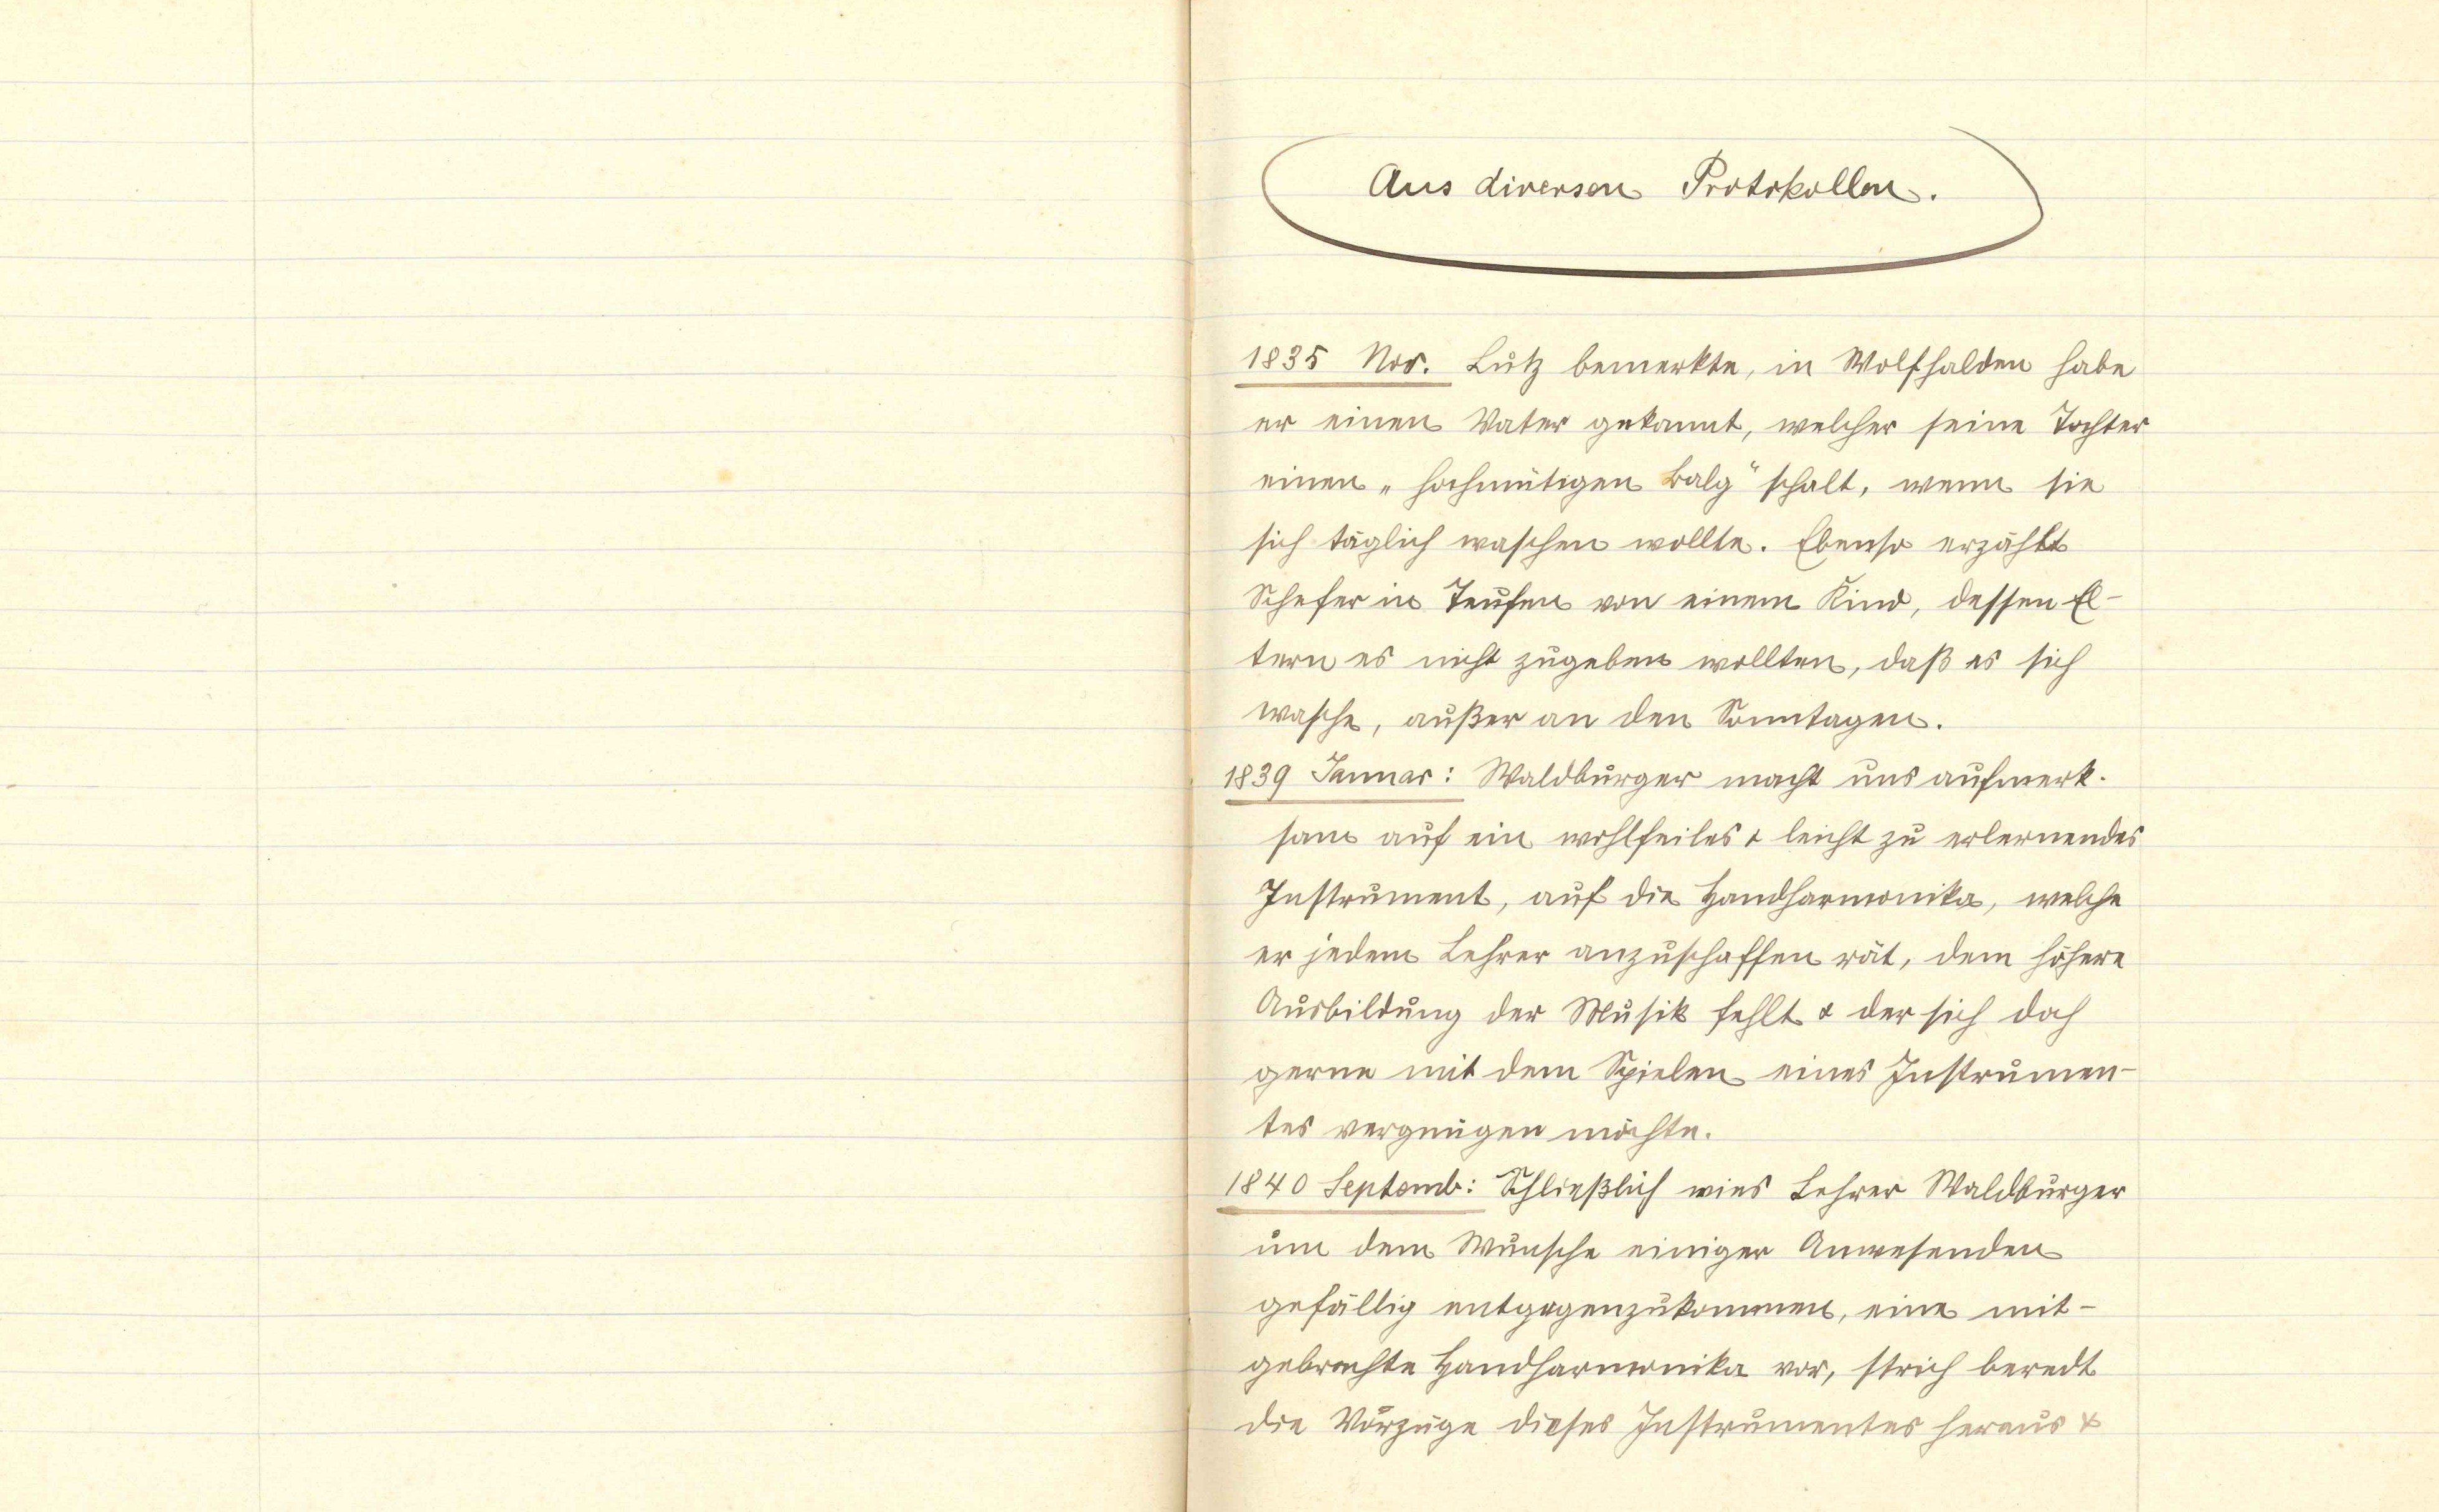 Aus diversen Protokollen.
1835 Nov. Lutz bemerkte, in Wolfhalden habe
er einen Vater gekannt, welcher seine Tochter
einen „hochmütigen Balg" schalt, wenn sie
sich täglich waschen wollte. Ebenso erzählt
Schefer in Teufen von einem Kind, dessen El-
tern es nicht zugeben wollten, daß es sich
wasche, außer an den Sonntagen.
1839 Januar: Waldburger macht uns aufmerk-
sam auf ein wohlfeiles & leicht zu erlernendes
Instrument, auf die Handharmonika, welche
er jedem Lehrer anzuschaffen rät, dem höhere
Ausbildung der Musik fehlt & der sich doch
gerne mit dem Spielen eines Instrumen-
tes vergnügen möchte.
1840 Septemb: Schließlich wies Lehrer Waldburger
um dem Wunsche einiger Anwesenden
gefällig entgegenzukommen, eine mit-
gebrachte Handharmonika vor, strich beredt
die Vorzüge dieses Instrumentes heraus &